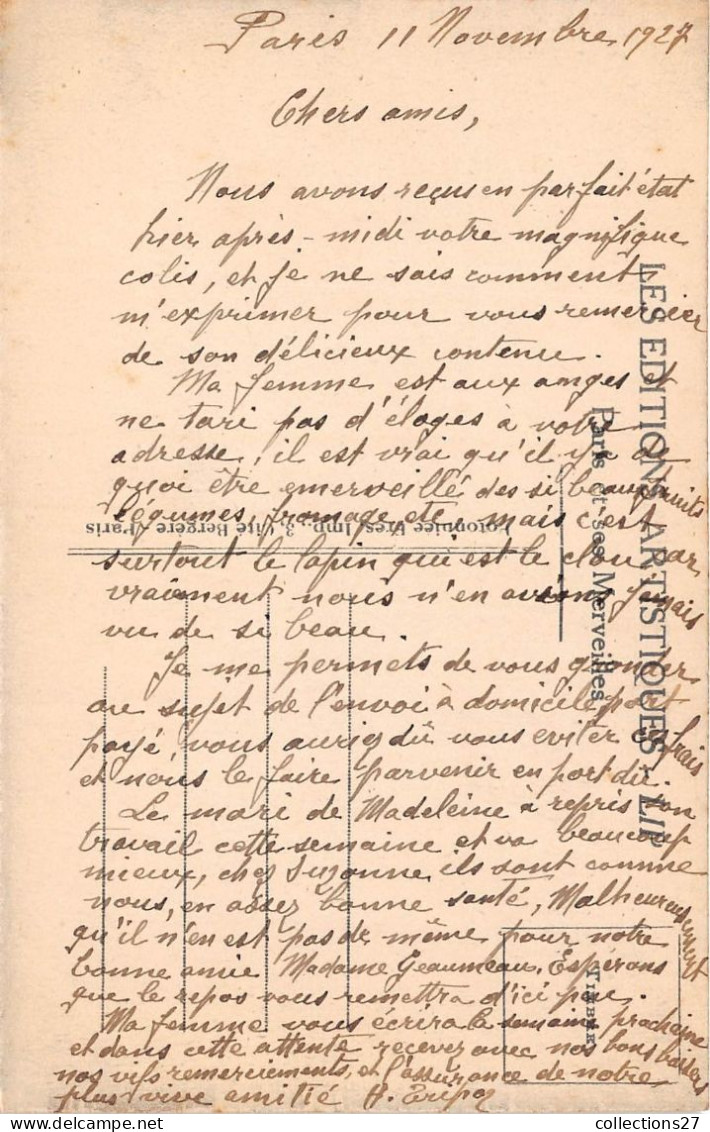 Paris 11 Novembre 1927
Chers amis,
Nous avons reçus en parfait état
hier après-midi votre magnifique
colis, et je ne sais comment
m'exprimer pour vous remercier
de son délicieux contenu.
Ma femme est aux anges et
ne tari pas d'éloges à votre
adresse, il est vrai qu'il y a de
quoi être emerveillé des si beaux fruits
légumes, fromage etc, mais c'est
surtout le lapin qui est le clou car
vraiment nous n'en avions jamais
vu de si beau.
Je me permets de vous gronder
au sujet de l'envoi à domicile port
payé, vous auriez dû vous eviter ces frais
et nous le faire parvenir en port dû.
Le mari de Madeleine à repris son
travail cette semaine et va beaucoup
mieux, chez Suzanne ils sont comme
nous, en assez bonne santé, Malheureusement
qu'il n'en est pas de même pour notre
bonne amie Madame Geaumeau. Espérons
que le repos vous remettra d'ici peu.
Ma femme vous écrira la semaine prochaine
et dans cette attente recevez avec nos bons baisers
nos vifs remerciements, et l'assurance de notre
plus vive amitié
LES EDITIONS ARTISTIQUES - LIP
Paris et ses Merveilles
Frès, Imp. 3, Cité Bergère, Paris
TIMBRE
collections27